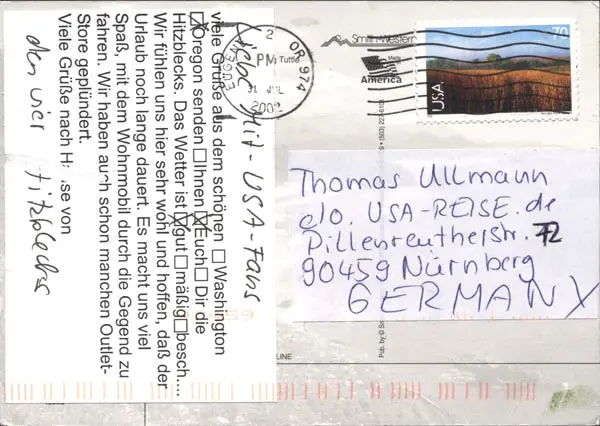 Liebe Mit-USA-Fans
viele Grüße aus dem schönen ☐ Washington
☒ Oregon senden ☐ Ihnen ☒ Euch ☐ Dir die
Hitzblecks. Das Wetter ist ☒ gut ☐ mäßig ☐ besch....
Wir fühlen uns hier sehr wohl und hoffen, daß der
Urlaub noch lange dauert. Es macht uns viel
Spaß, mit dem Wohnmobil durch die Gegend zu
fahren. Wir haben auch schon manchen Outlet-
Store geplündert.
Viele Grüße nach H se von
den vier Hitzblecks
EUGENE
OR 974
2
PM
31 JUL
Tuttle
Smith-Western
Made
America
70
USA
Thomas Ullmann
c/o. USA-REISE.de
Pillenreutherstr. 72
90459 Nürnberg
GERMANY
Pub. by
LINE